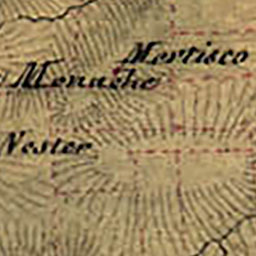 Mertisco
Menache
Nester